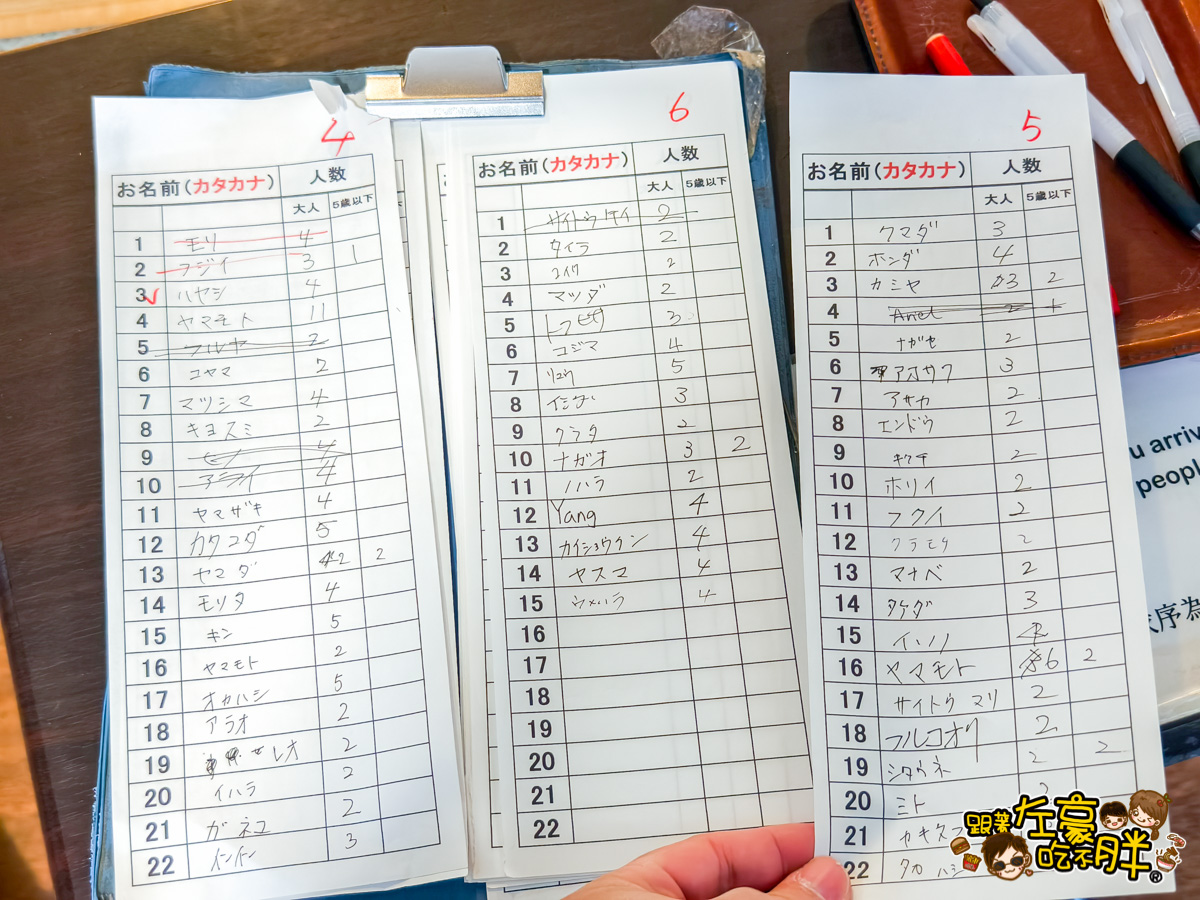 4
お名前(カタカナ) 人数
大人 5歳以下
1 モリ 4
2 フジイ 3 1
3 ハヤシ 4
4 ヤマモト 11
5 フルヤ 2
6 コヤマ 2
7 マツシマ 4
8 キヨスミ 2
9 4
10 アライ 4
11 ヤマザキ 4
12 カタコダ 5
13 ヤマダ 2 2
14 モリタ 4
15 キン 5
16 ヤマモト 2
17 オカハシ 5
18 アラオ 2
19 セレオ 2
20 イハラ 2
21 ガーネコ 2
22 3
6
お名前(カタカナ) 人数
大人 5歳以下
1 サイトウケイ 2
2 タイラ 2
3 2
4 マツダ 2
5 3
6 コジマ 4
7 リュウ 5
8 3
9 クラタ 2
10 ナガオ 3 2
11 ノハラ 2
12 Yang 4
13 カイショウケン 4
14 ヤスマ 4
15 ウメハラ 4
16
17
18
19
20
21
22
5
お名前(カタカナ) 人数
大人 5歳以下
1 クマダ 3
2 ホンダ 4
3 カミヤ 3 2
4 Anel 2 1
5 ナガセ 2
6 アオサワ 3
7 アサカ 2
8 エンドウ 2
9 キクチ 2
10 ホリイ 2
11 フクイ 2
12 クラモリ 2
13 マナベ 2
14 タケダ 3
15 イハノ
16 ヤマモト 6 2
17 サイトウ マリ 2
18 フルコオリ 2
19 シタウネ 2 2
20 ミト
21 カキヌマ
22 タカハシ
u arriv
peopl
序為
跟著左豪吃不胖®